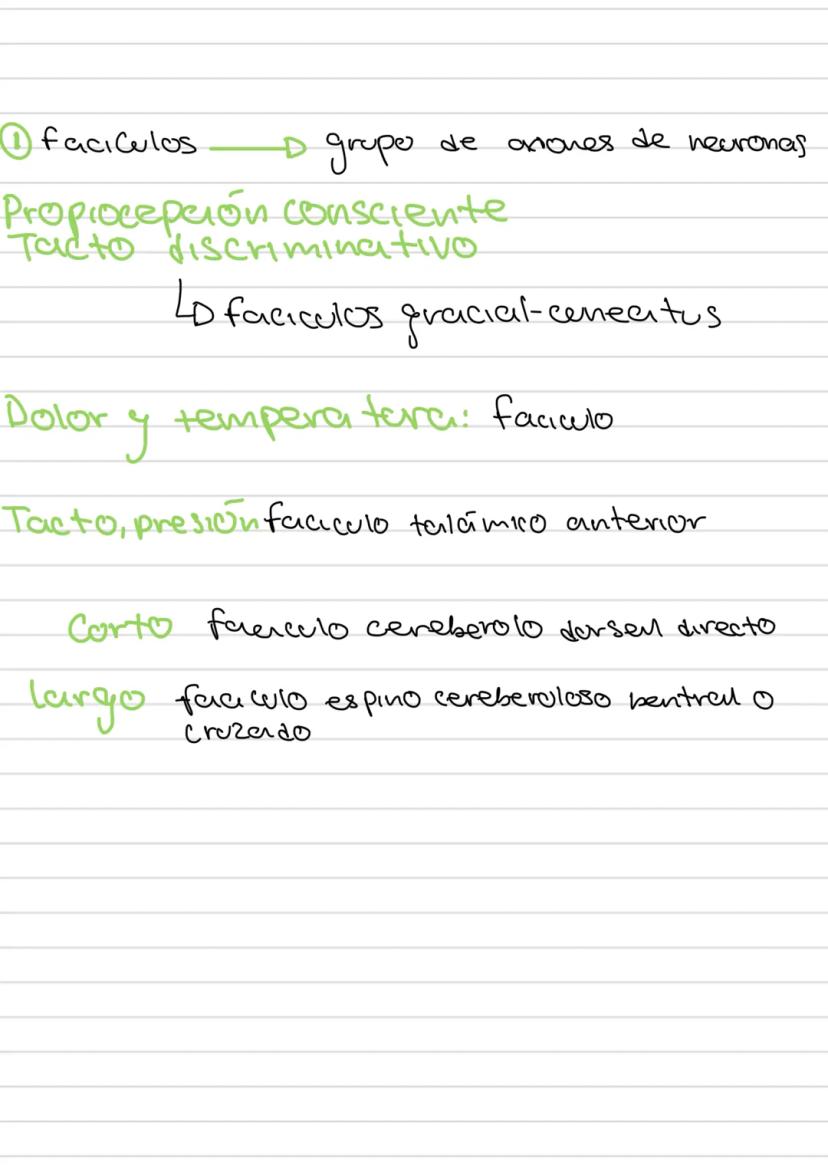 ① faciculos → grupo de axones de neuronas
Propiocepción consciente
Tacto discriminativo
↳ faciculos gracial-cuneatus
Dolor y temperatura: faciculo
Tacto, presión faciculo talámico anterior
Corto faciculo cereberolo dorsal directo
largo faciculo espino cereberoloso bentral o
cruzado